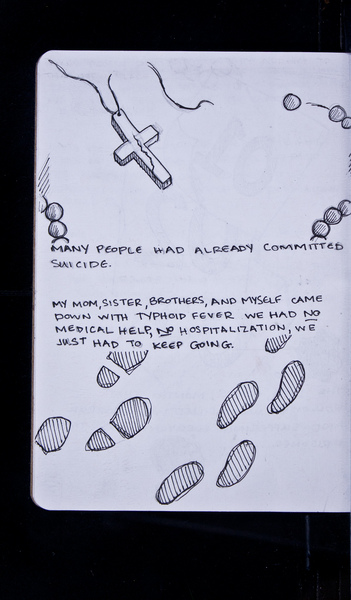 MANY PEOPLE HAD ALREADY COMMITTED
SUICIDE.
MY MOM, SISTER, BROTHERS, AND MYSELF CAME
DOWN WITH TYPHOID FEVER WE HAD NO
MEDICAL HELP, NO HOSPITALIZATION, WE
JUST HAD TO KEEP GOING.